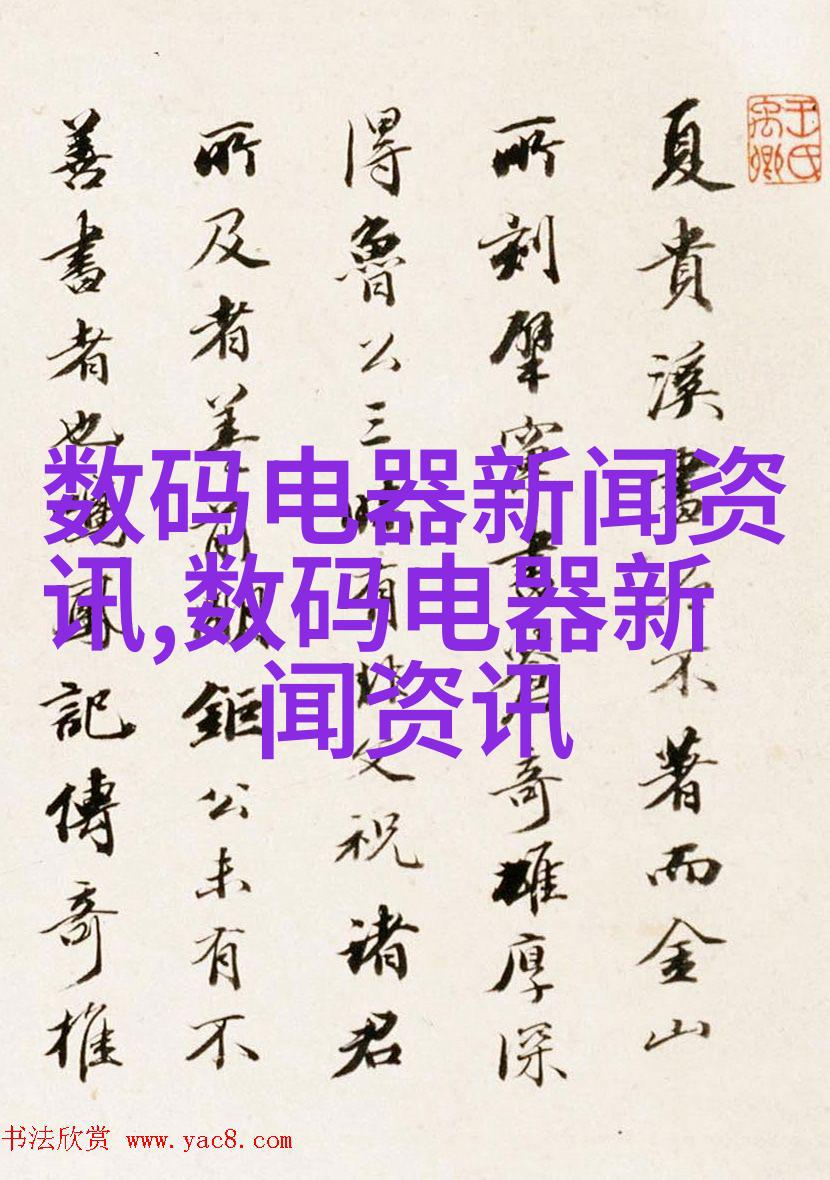 王氏
禹卿
夏貴溪書不著而金山
所刻擘窠書奇雄厚深
得魯公三昧有文祝諸君
所及者前明鉅公未有不
善書者也記傳奇推
数码电器新闻资
讯,数码电器新
闻资讯
书法欣赏 www.yac8.com